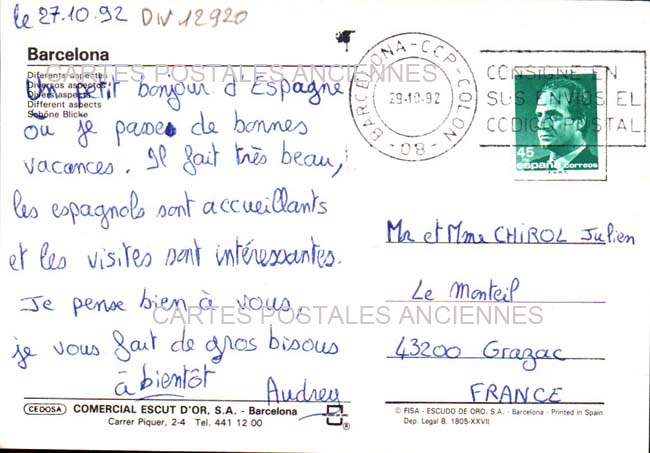 le 27.10.92 DIV 12920
Barcelona
Diferents aspectes
Diversos aspectos
Divers aspects
Different aspects
Schöne Blicke
CARTES POSTALES ANCIENNES
Un petit bonjour d'Espagne
où je passe de bonnes
vacances. Il fait très beau,
les espagnols sont accueillants
et les visites sont intéressantes.
Je pense bien à vous,
je vous fait de gros bisous
à bientôt Audrey
CARTES POSTALES ANCIENNES
BARCELONA-CCP-COLON
29-10-92
-08-
CONSIGNE EN
SUS ENVIOS EL
CODIGO POSTAL
45
españa correos
Mr et Mme CHIROL Julien
Le Monteil
43200 Grazac
FRANCE
CEDOSA COMERCIAL ESCUT D'OR, S.A. - Barcelona
Carrer Piquer, 2-4 Tel. 441 12 00
®
© FISA - ESCUDO DE ORO, S.A. - Barcelona - Printed in Spain
Dep. Legal B. 1805-XXVII